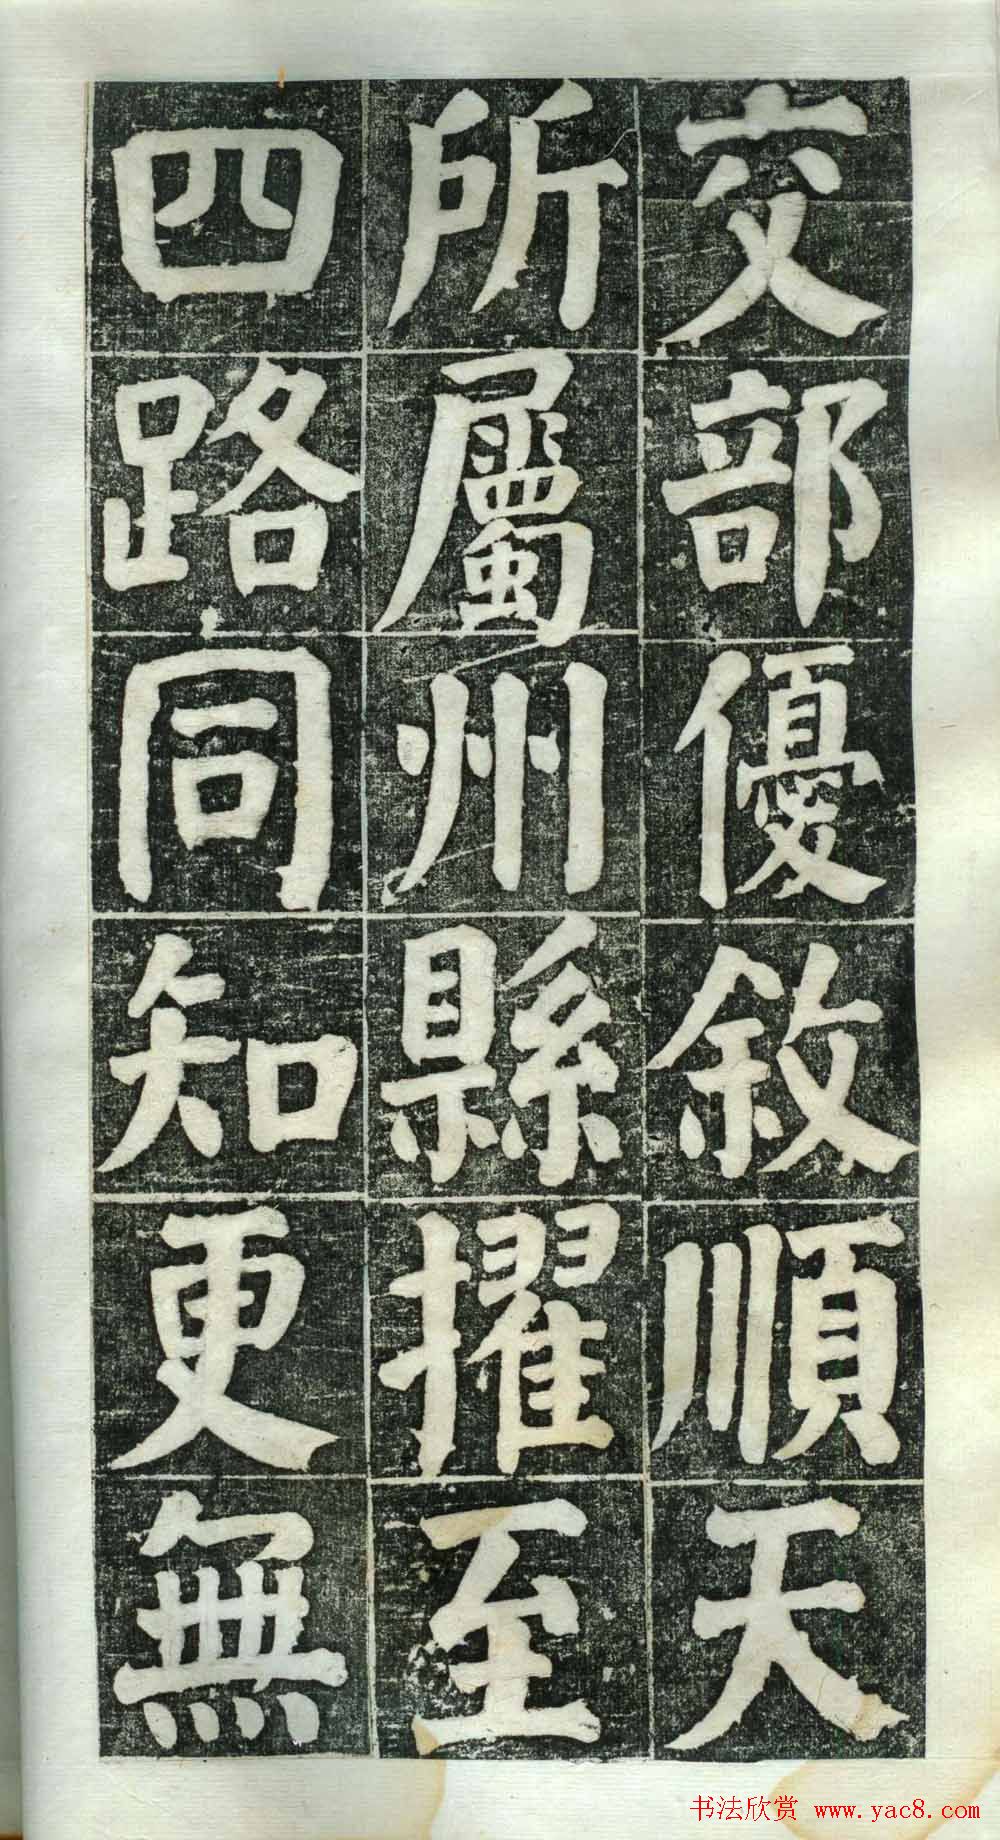 交部優敘順天
所屬州縣擢至
四路同知更無
书法欣赏 www.yac8.com